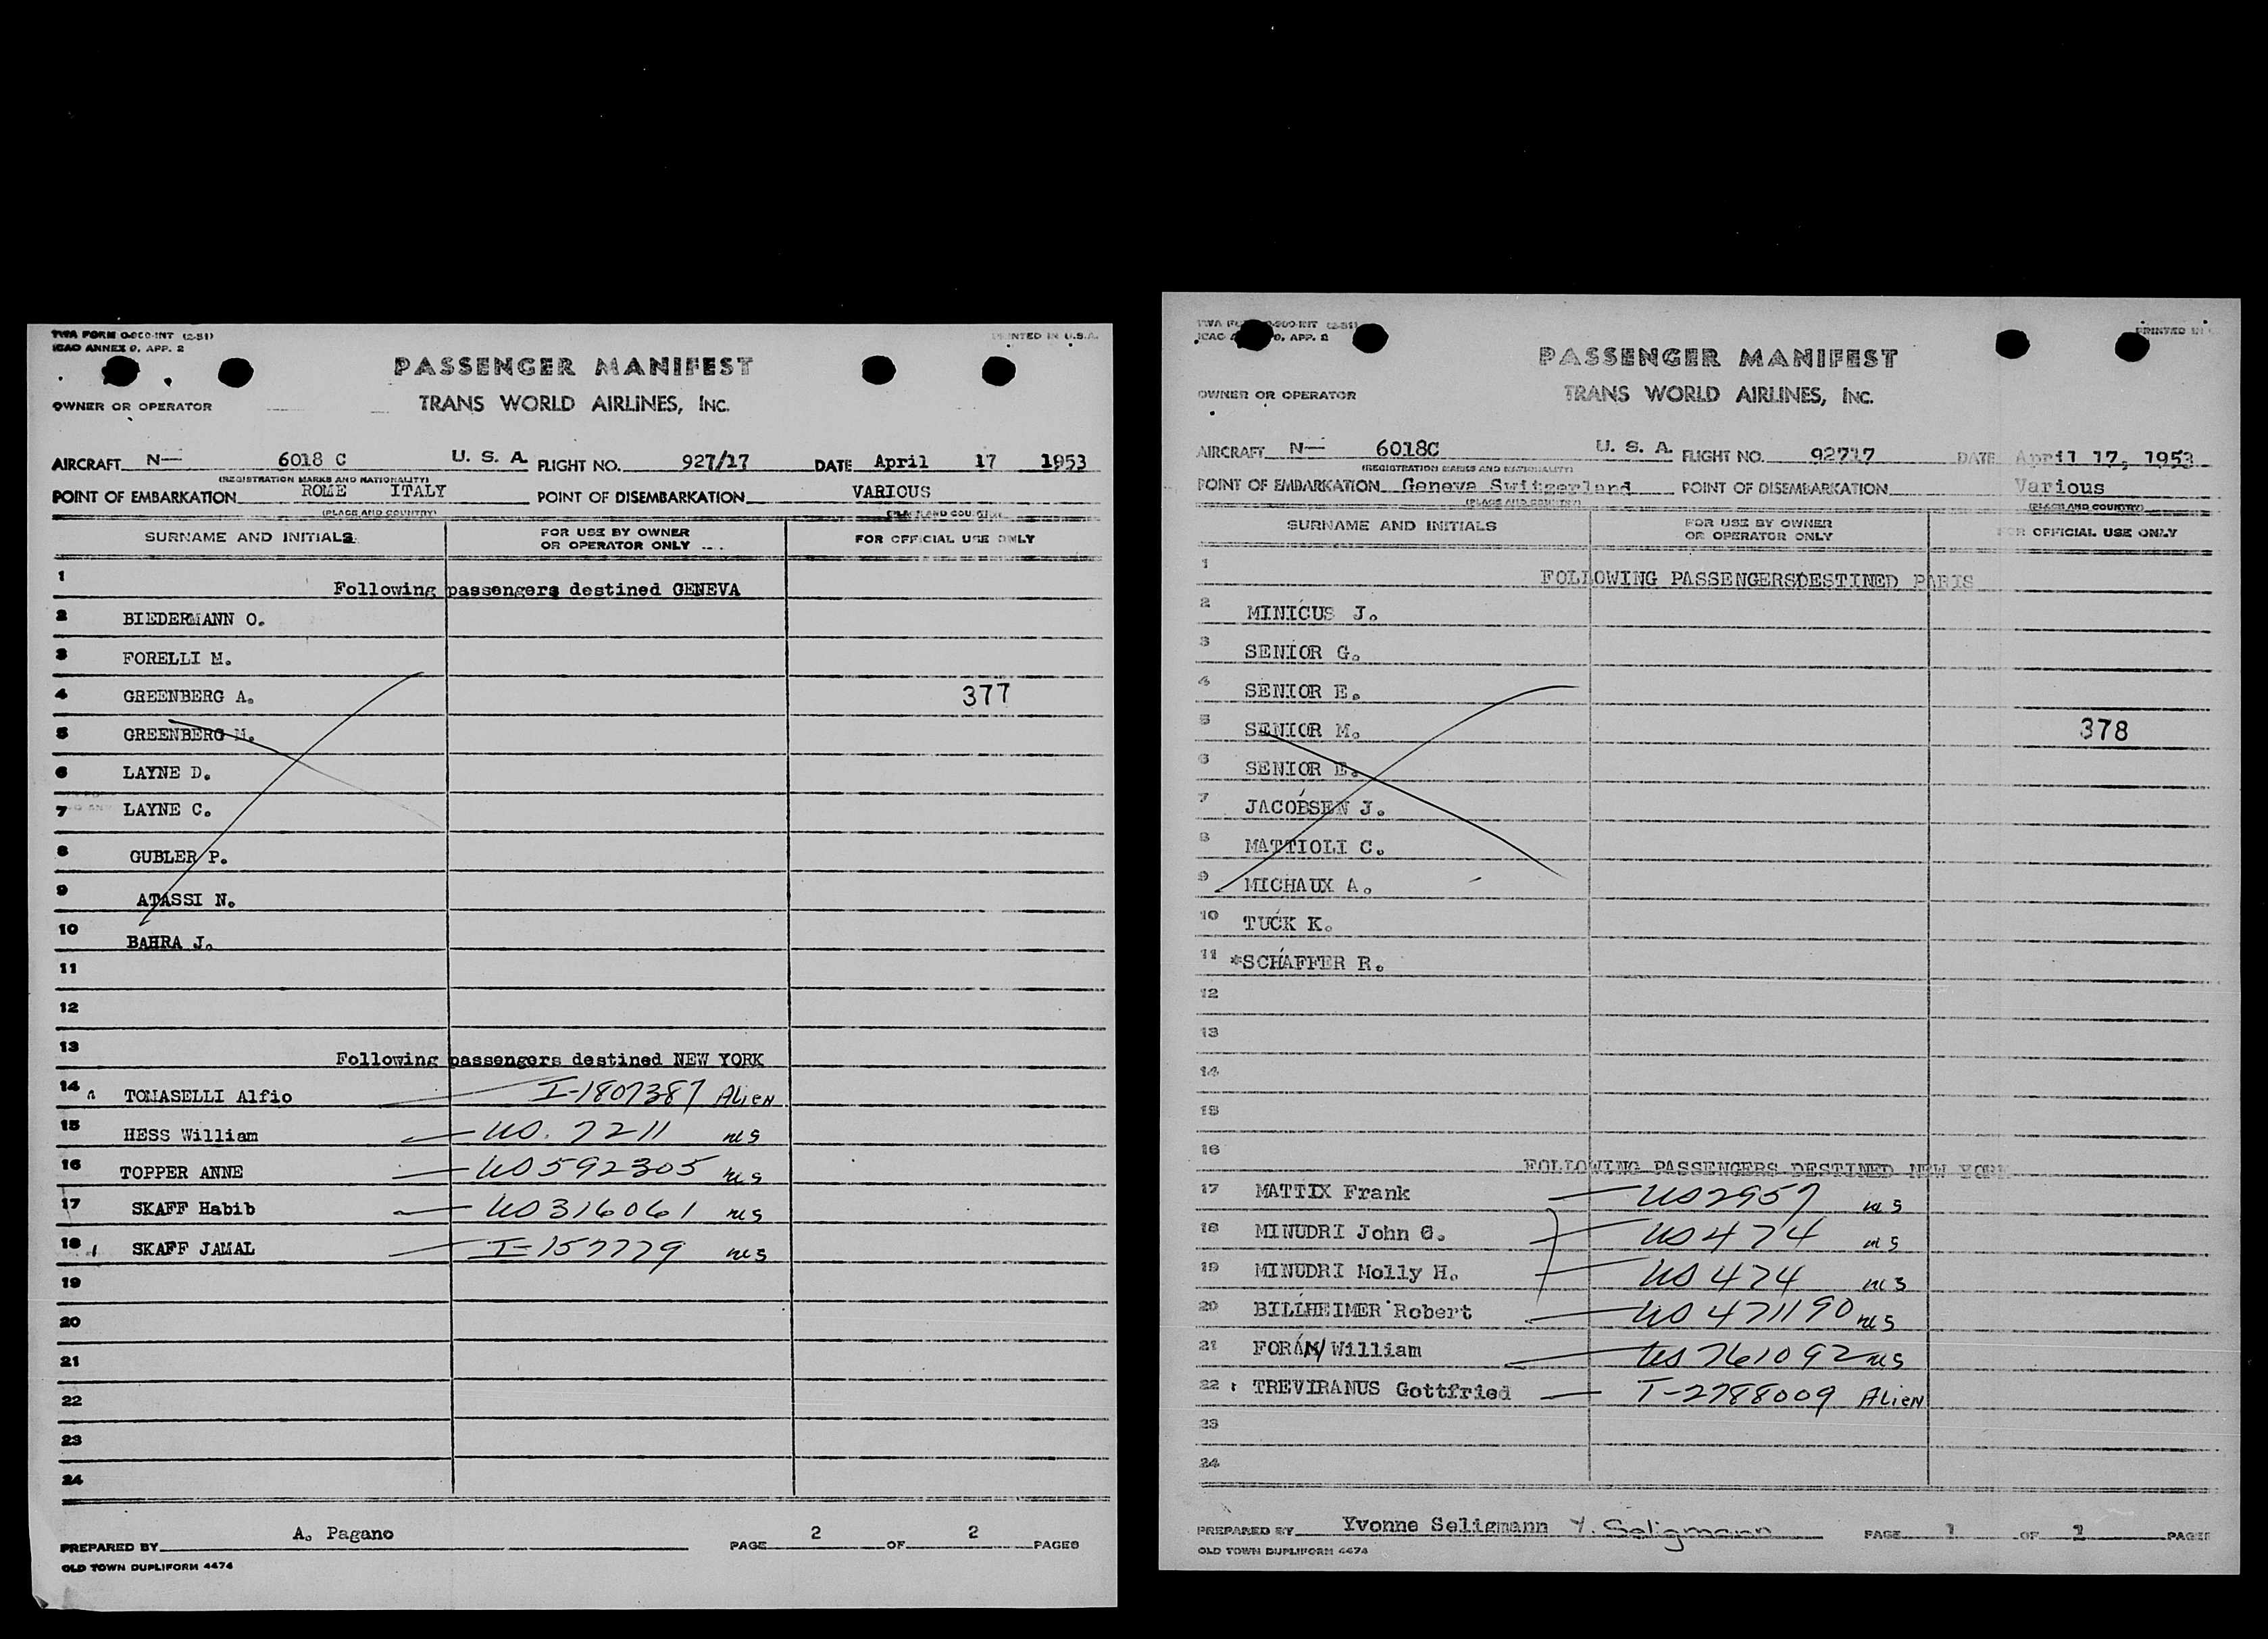 TWA FORM O-900-INT (2-51)
ICAO ANNEX 9, APP. 2
PRINTED IN U.S.A.
PASSENGER MANIFEST
OWNER OR OPERATOR
TRANS WORLD AIRLINES, INC.
AIRCRAFT N— 6018 C U. S. A. FLIGHT NO. 927/17 DATE April 17 1953
(REGISTRATION MARKS AND NATIONALITY)
POINT OF EMBARKATION ROME ITALY POINT OF DISEMBARKATION VARIOUS
(PLACE AND COUNTRY) (PLACE AND COUNTRY)
SURNAME AND INITIALS FOR USE BY OWNER OR OPERATOR ONLY FOR OFFICIAL USE ONLY
1 Following passengers destined GENEVA
2 BIEDERMANN O.
3 FORELLI M.
4 GREENBERG A. 377
5 GREENBERG M.
6 LAYNE D.
7 LAYNE C.
8 GUBLER P.
9 ATASSI N.
10 BAHRA J.
11
12
13 Following passengers destined NEW YORK
14 TOMASELLI Alfio I-1807387 Alien
15 HESS William US. 7211
16 TOPPER ANNE US 592305
17 SKAFF Habib US 316061
18 SKAFF JAMAL I-157779
19
20
21
22
23
24
PREPARED BY A. Pagano PAGE 2 OF 2 PAGES
OLD TOWN DUPLIFORM 4474
PASSENGER MANIFEST
OWNER OR OPERATOR
TRANS WORLD AIRLINES, INC.
AIRCRAFT N— 6018C U. S. A. FLIGHT NO. 92717 DATE April 17, 1953
(REGISTRATION MARKS AND NATIONALITY)
POINT OF EMBARKATION Geneva Switzerland POINT OF DISEMBARKATION Various
(PLACE AND COUNTRY) (PLACE AND COUNTRY)
SURNAME AND INITIALS FOR USE BY OWNER OR OPERATOR ONLY FOR OFFICIAL USE ONLY
1 FOLLOWING PASSENGERSDESTINED PARIS
2 MINICUS J.
3 SENIOR G.
4 SENIOR E.
5 SENIOR M. 378
6 SENIOR E.
7 JACOBSEN J.
8 MATTIOLI C.
9 MICHAUX A.
10 TUCK K.
11 *SCHAFFER R.
12
13
14
15
16 FOLLOWING PASSENGERS DESTINED NEW YORK
17 MATTIX Frank US 2957
18 MINUDRI John G. US 474
19 MINUDRI Molly H. US 474
20 BILLHEIMER Robert US 471190
21 FORAN William US 761092
22 TREVIRANUS Gottfried I-2788009 Alien
23
24
PREPARED BY Yvonne Seligmann Y. Seligmann PAGE 1 OF PAGES
OLD TOWN DUPLIFORM 4474